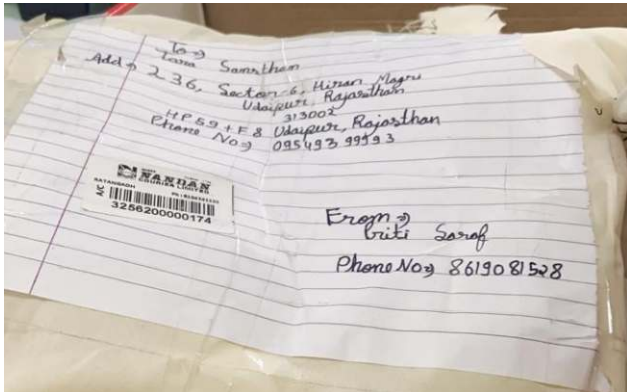 To →
Tara Sansthan
Add → 236, Sector 6, Hiran Magri
Udaipur, Rajasthan
313002
HP59+F8 Udaipur, Rajasthan
Phone No → 095493 99993
NANDAN
COURIER LIMITED
RATANGARH
A/C
3256200000174
From →
Priti Saraf
Phone No → 8619081528